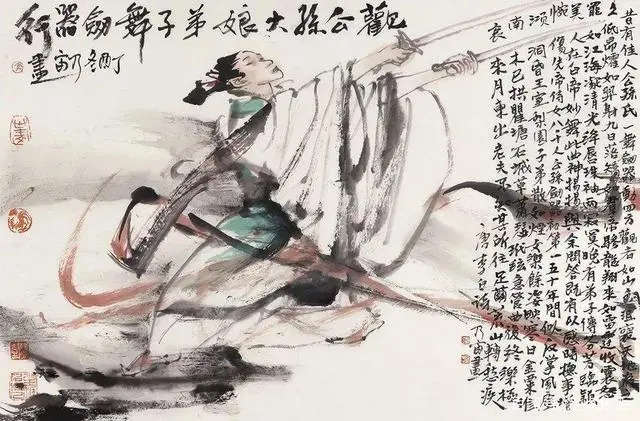 觀公孫大娘弟子舞劍器行
丁冬乃宙畫
昔有佳人公孫氏一舞劍器動四方觀者如山色沮喪天地為之
久低昂㸌如羿射九日落矯如群帝驂龍翔來如雷霆收震怒
罷如江海凝清光絳唇珠袖兩寂寞晚有弟子傳芬芳臨潁
美人在白帝妙舞此曲神揚揚與余問答既有以感時撫事增
惋傷先帝侍女八千人公孫劍器初第一五十年間似反掌風塵
澒洞昏王室梨園子弟散如煙女樂餘姿映寒日金粟堆
南木已拱瞿塘石城草蕭瑟玳筵急管曲復終樂極
哀來月東出老夫不知其所往足繭荒山轉愁疾
唐李白詩乃宙畫